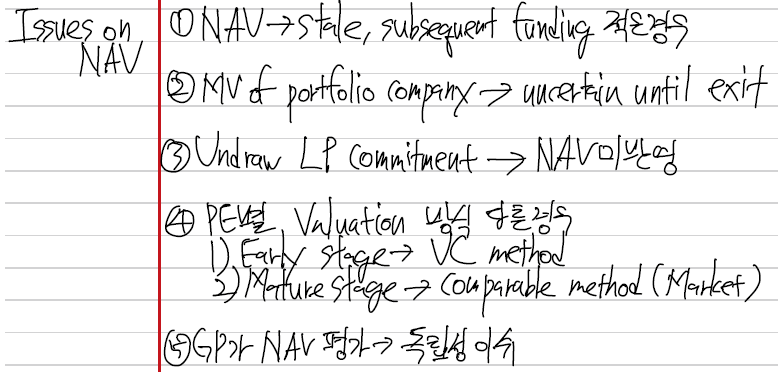 Issues on
NAV
① NAV → stale, subsequent funding 적은경우
② MV of portfolio company → uncertain until exit
③ Undraw LP Commitment → NAV 미반영
④ PE별 Valuation 방식 다른경우
1) Early stage → VC method
2) Mature stage → Comparable method (Market)
⑤ GP가 NAV 평가 → 독립성 이슈